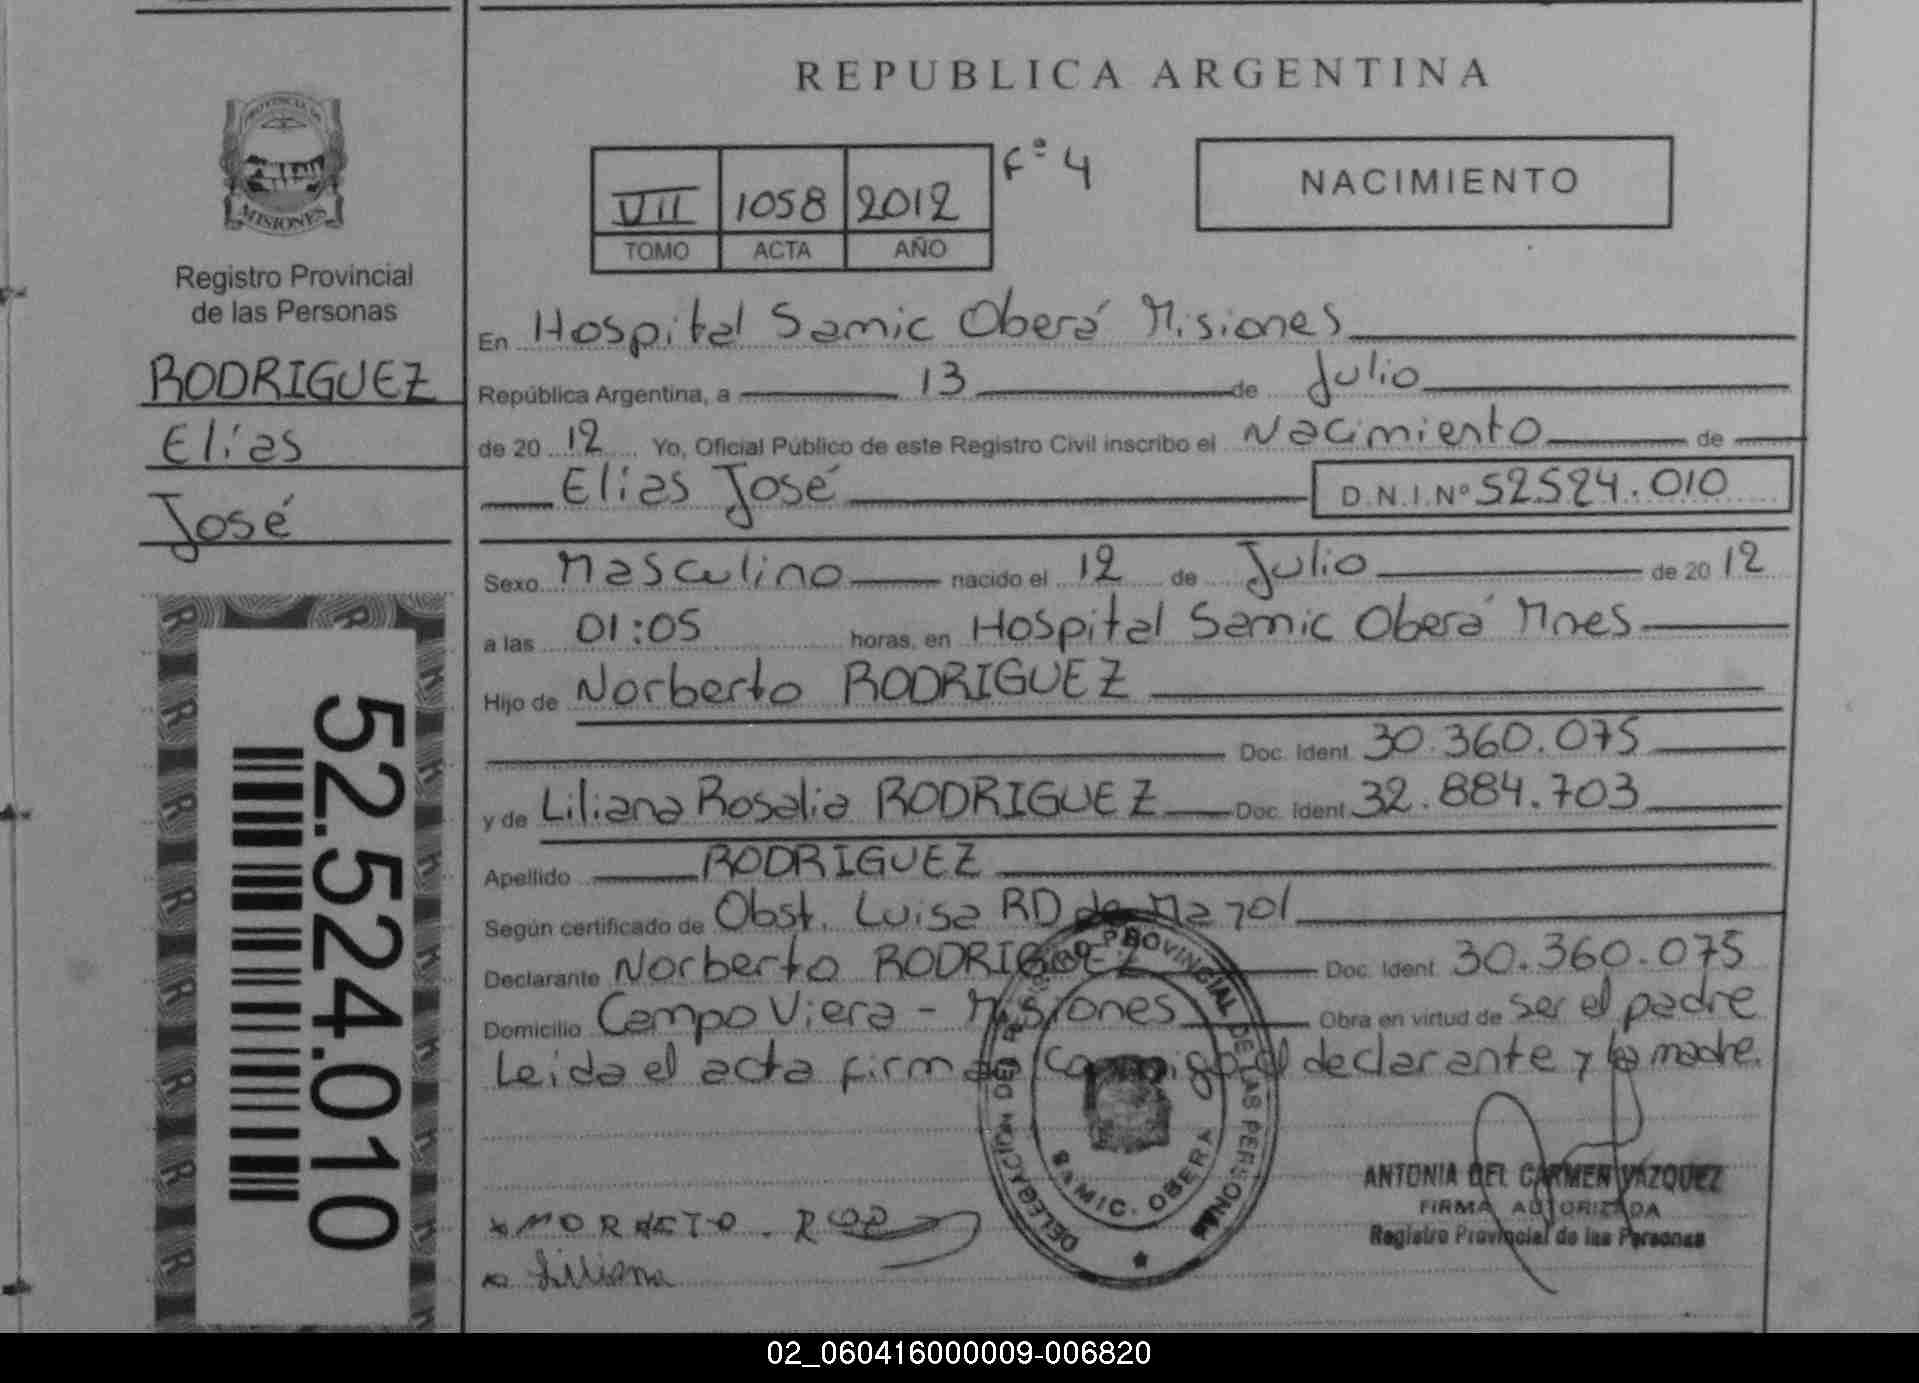 REPUBLICA ARGENTINA
PROVINCIA DE
MISIONES
Registro Provincial
de las Personas
RODRIGUEZ
Elías
José
52.524.010
VII 1058 2012 Fº 4
TOMO ACTA AÑO
NACIMIENTO
En Hospital Samic Oberá Misiones
República Argentina, a 13 de Julio
de 2012 Yo, Oficial Público de este Registro Civil inscribo el Nacimiento de
Elias José D.N.I.Nº 52.524.010
Sexo Masculino nacido el 12 de Julio de 2012
a las 01:05 horas, en Hospital Samic Oberá Mnes
Hijo de Norberto RODRIGUEZ
Doc. Ident. 30.360.075
y de Liliana Rosalia RODRIGUEZ Doc. Ident. 32.884.703
Apellido RODRIGUEZ
Según certificado de Obst. Luisa RD de
Declarante Norberto RODRIGUEZ Doc. Ident. 30.360.075
Domicilio Campo Viera - Misiones Obra en virtud de ser el padre
Leida el acta firman conmigo el declarante y la madre.
DELEGACIÓN DEL REGISTRO PROVINCIAL DE LAS PERSONAS
SAMIC. OBERA
ANTONIA DEL CARMEN VAZQUEZ
FIRMA AUTORIZADA
Registro Provincial de las Personas
Liliana
02_060416000009-006820